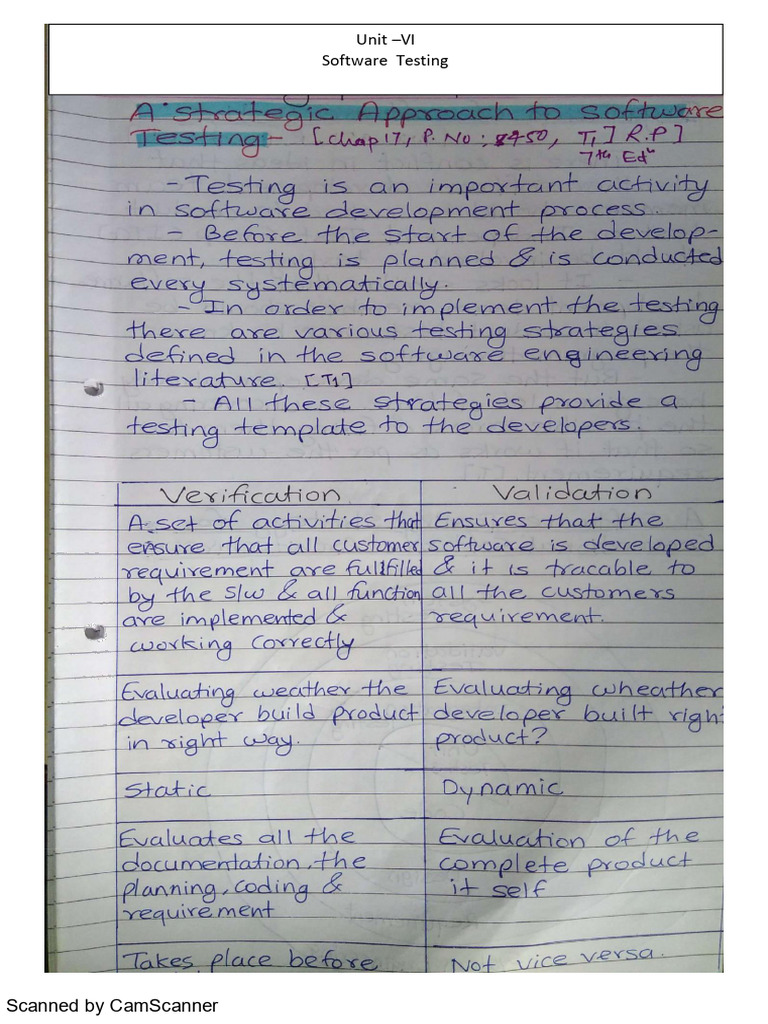 Unit –VI
Software Testing
A Strategic Approach to Software
Testing- [chap 17, P. No: 450, T1] R.P]
7th Edn
- Testing is an important activity
in software development process.
- Before the start of the develop-
ment, testing is planned & is conducted
every systematically.
- In order to implement the testing
there are various testing strategies
defined in the software engineering
literature. [T1]
- All these strategies provide a
testing template to the developers.
Verification
A set of activities that
ensure that all customer
requirement are fullfilled
by the s/w & all function
are implemented &
working correctly
Validation
Ensures that the
software is developed
& it is tracable to
all the customers
requirement.
Evaluating weather the
developer build product
in right way.
Evaluating wheather
developer built right
product?
Static
Dynamic
Evaluates all the
documentation, the
planning, coding &
requirement
Evaluation of the
complete product
it self
Takes place before
Not vice versa.
Scanned by CamScanner